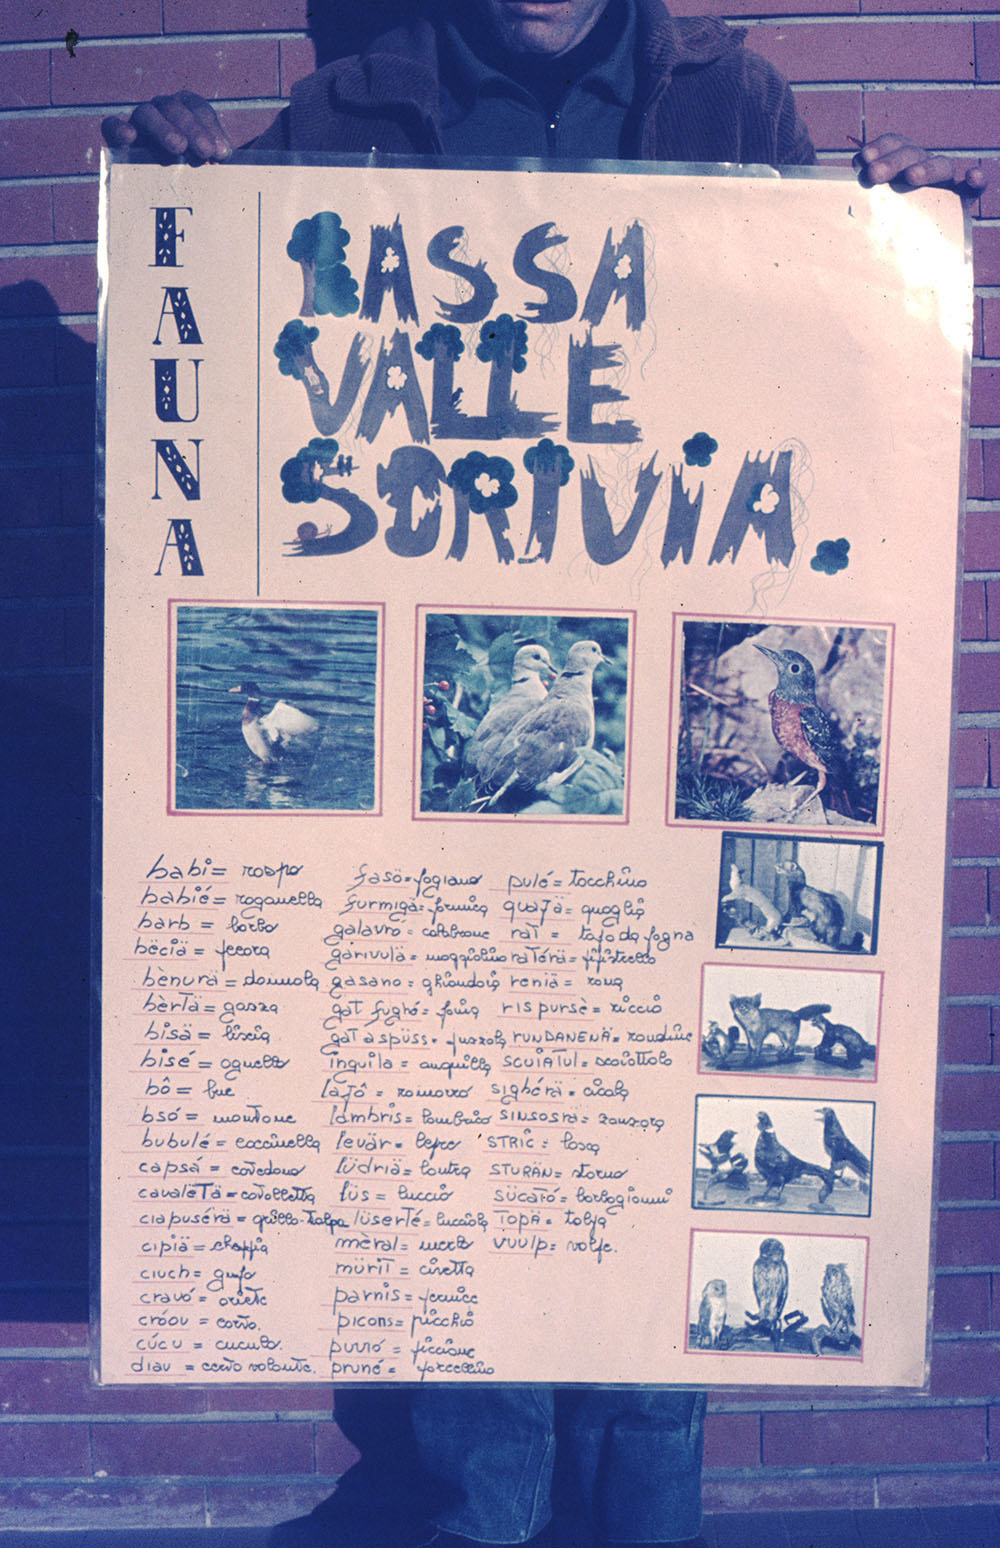 FAUNA
BASSA
VALLE
SCRIVIA.
babi = rospo
babié = raganella
barb = barbo
bëciä = pecora
bènurä = donnola
bèrtä = gazza
bisä = biscia
bisé = agnello
bô = bue
bsó = montone
bubulé = coccinella
capsá = covedano
cavalëtä = cavalletta
ciapusérä = grillo-talpa
cipiä = cheppia
ciuch = gufo
cravó = oriete
cróou = corvo.
cúcu = cuculo.
diau = cervo volante.
fasö = fagiano
furmigä = formica
galavró = calabrone
garivulä = maggiolino
gasano = ghiandaia
gat fughó = faina
gat a spüss = puzzola
inguila = anguilla
lajô = ramarro
lömbris = lombrico
levär = lepre
lüdriä = lontra
lüs = luccio
lüserté = lucciola
mèral = merlo
mürit = civetta
parnis = pernice
picons = picchio
puvró = piccione
pruné = porcellino
pulé = tacchino
quajä = quaglia
rat = topo da fogna
ratérä = pipistrello
reniä = rana
ris pursè = riccio
rundanenä = rondine
scuiatul = scoiattolo
sighérä = cicala
sinsosrä = zanzara
stric = lasca
sturän = storno
sücató = barbagianni
topä = talpa
vuulp = volpe.